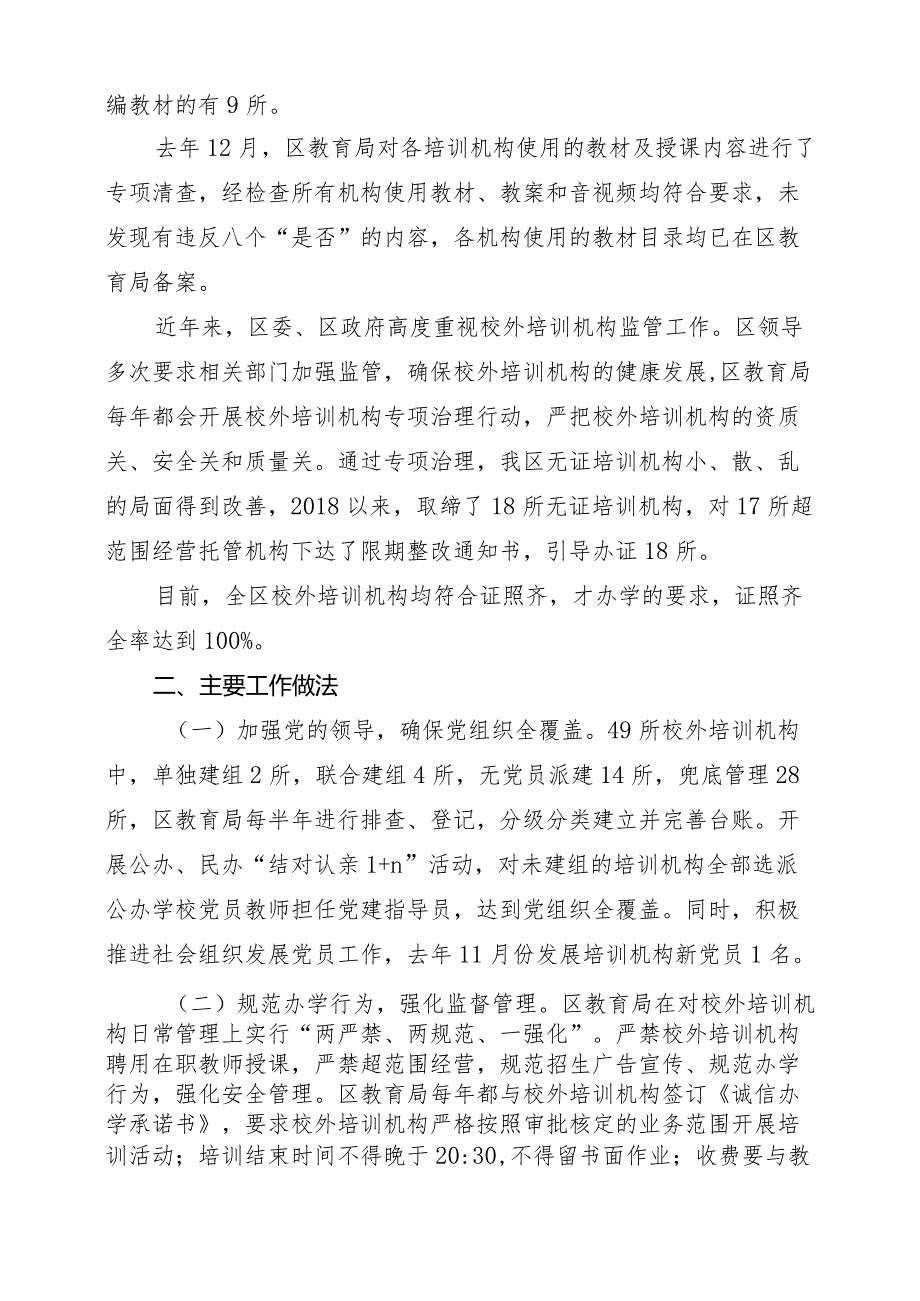 编教材的有 9 所。
去年 12 月，区教育局对各培训机构使用的教材及授课内容进行了
专项清查，经检查所有机构使用教材、教案和音视频均符合要求，未
发现有违反八个“是否”的内容，各机构使用的教材目录均已在区教
育局备案。
近年来，区委、区政府高度重视校外培训机构监管工作。区领导
多次要求相关部门加强监管，确保校外培训机构的健康发展,区教育局
每年都会开展校外培训机构专项治理行动，严把校外培训机构的资质
关、安全关和质量关。通过专项治理，我区无证培训机构小、散、乱
的局面得到改善，2018 以来，取缔了 18 所无证培训机构，对 17 所超
范围经营托管机构下达了限期整改通知书，引导办证 18 所。
目前，全区校外培训机构均符合证照齐，才办学的要求，证照齐
全率达到 100%。
二、主要工作做法
（一）加强党的领导，确保党组织全覆盖。49 所校外培训机构
中，单独建组 2 所，联合建组 4 所，无党员派建 14 所，兜底管理 28
所，区教育局每半年进行排查、登记，分级分类建立并完善台账。开
展公办、民办“结对认亲 1+n”活动，对未建组的培训机构全部选派
公办学校党员教师担任党建指导员，达到党组织全覆盖。同时，积极
推进社会组织发展党员工作，去年 11 月份发展培训机构新党员 1 名。
（二）规范办学行为，强化监督管理。区教育局在对校外培训机
构日常管理上实行“两严禁、两规范、一强化”。严禁校外培训机构
聘用在职教师授课，严禁超范围经营，规范招生广告宣传、规范办学
行为，强化安全管理。区教育局每年都与校外培训机构签订《诚信办
学承诺书》，要求校外培训机构严格按照审批核定的业务范围开展培
训活动；培训结束时间不得晚于 20:30,不得留书面作业；收费要与教